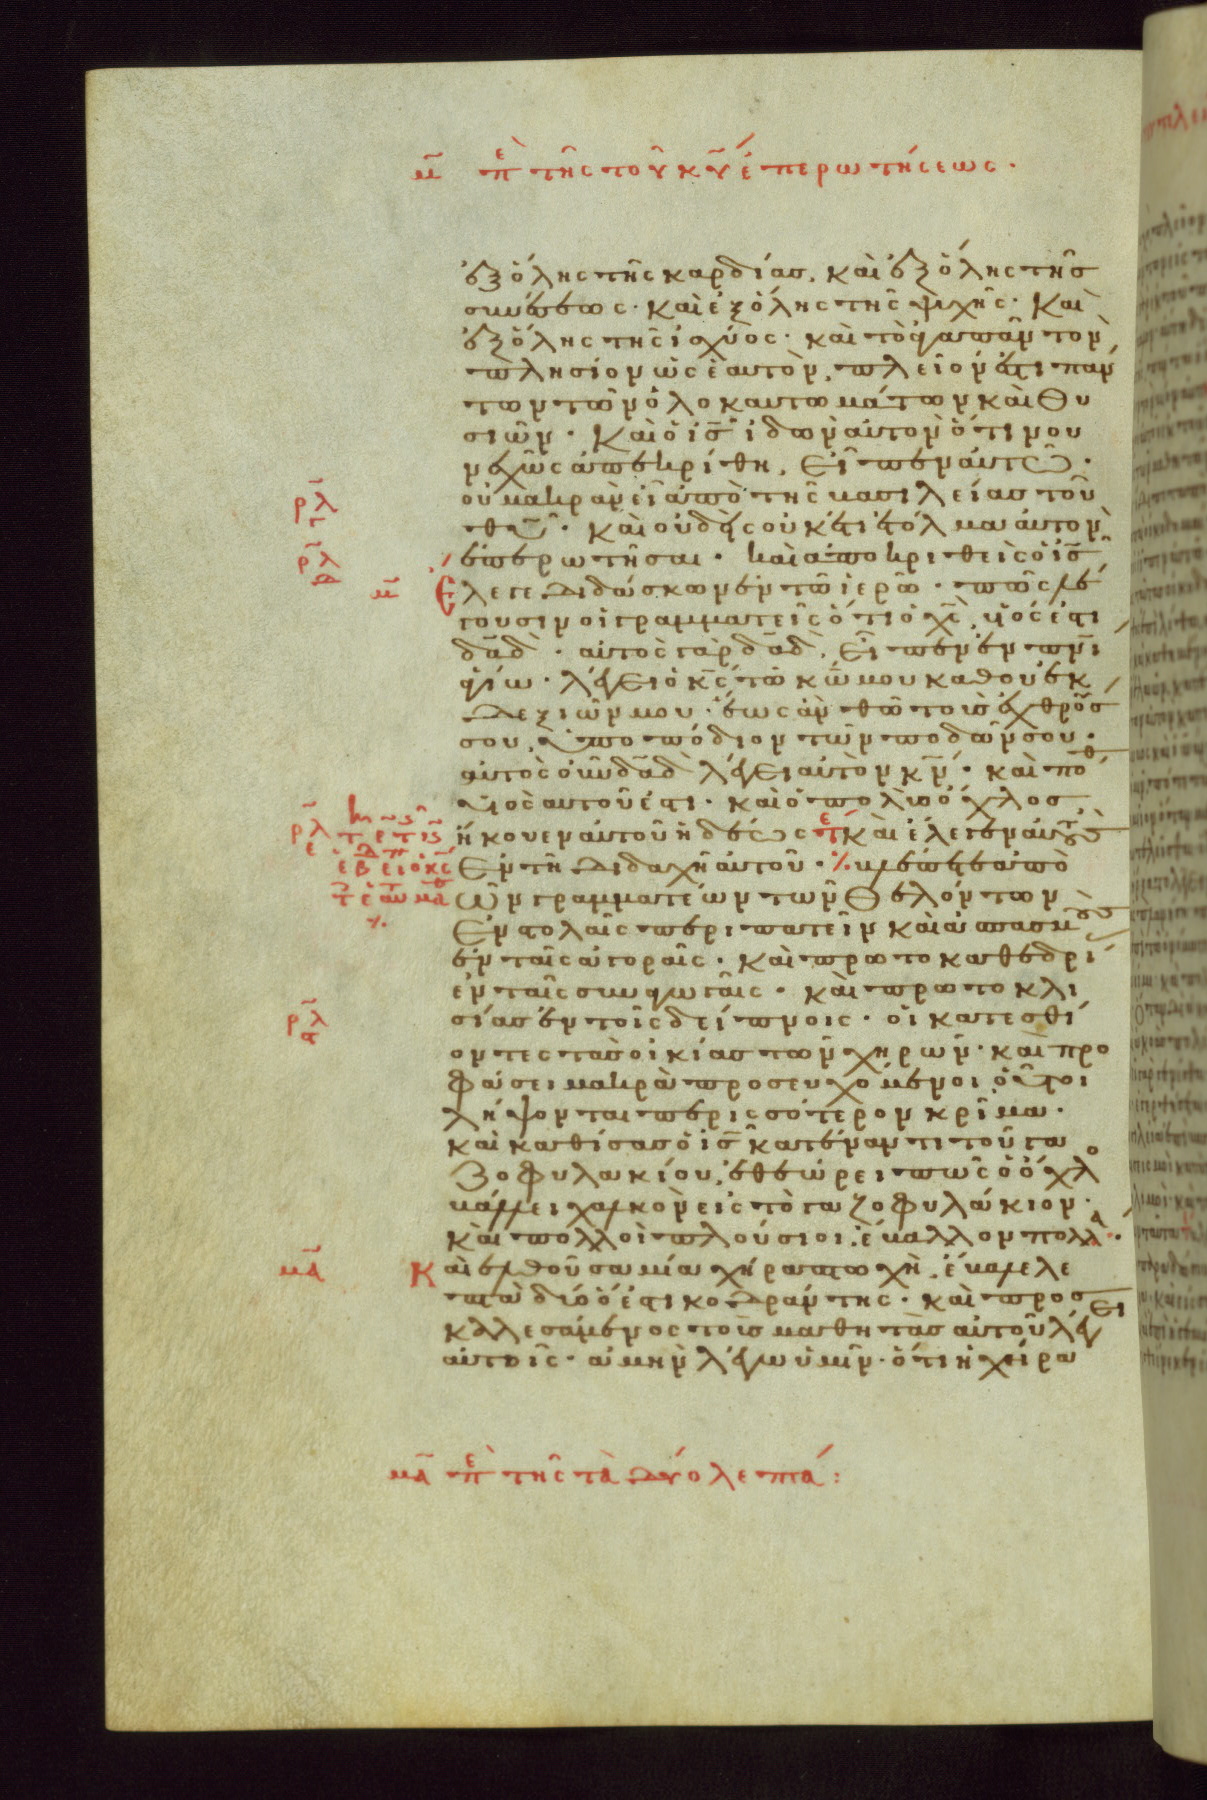 μ̅ πε τῆς τοῦ κυ̅ ἐπερωτήσεως·
ἐξ ὅλης τῆς καρδίας. καὶ ἐξ ὅλης τῆς
συνέσεως· καὶ ἐξ ὅλης τῆς ψυχῆς· καὶ
ἐξ ὅλης τῆς ἰσχύος· καὶ τὸ ἀγαπᾶν τὸν
πλησίον ὡς ἑαυτὸν, πλεῖόν ἐστι πάν
των τῶν ὁλοκαυτωμάτων καὶ θυ
σιῶν· καὶ ὁ ις̅ ἰδὼν αὐτὸν ὅτι νου
νεχῶς ἀπεκρίθη, εἶπεν αὐτῶ·
οὐ μακρὰν εἶ ἀπὸ τῆς βασιλείας τοῦ
θυ̅· καὶ οὐδεὶς οὐκέτι ἐτόλμα αὐτὸν
ἐπερωτῆσαι· καὶ ἀποκριθεὶς ὁ ις̅
ἔλεγε διδάσκων ἐν τῶ ἱερῶ· πῶς λέ
γουσιν οἱ γραμματεῖς ὅτι ὁ χς̅, υἱός ἐστι
δα̅δ· αὐτὸς γὰρ δα̅δ, εἶπεν ἐν πνι̅
ἁγίω· λέγει ὁ κς̅ τῶ κω̅ μου κάθου ἐκ
δεξιῶν μου· ἕως ἂν θῶ τοὺς ἐχθρούς
σου, ὑποπόδιον τῶν ποδῶν σου·
αὐτὸς οὖν δα̅δ λέγει αὐτὸν κν̅· καὶ πόθ
υἱὸς αὐτοῦ ἐστι· καὶ ὁ πολὺς ὄχλος
ἤκουεν αὐτοῦ ἡδέως καὶ ἔλεγεν αὐτοῖς
ἐν τῆ διδαχῆ αὐτοῦ· βλέπετε ἀπὸ
τῶν γραμματέων τῶν θελόντων
ἐν στολαῖς περιπατεῖν καὶ ἀσπασμοὺς
ἐν ταῖς ἀγοραῖς· καὶ πρωτοκαθεδρί
ἐν ταῖς συναγωγαῖς· καὶ πρωτοκλι
σίας ἐν τοῖς δείπνοις· οἱ κατεσθί
οντες τὰς οἰκίας τῶν χηρῶν· καὶ προ
φάσει μακρὰ προσευχόμενοι οὗτοι
λήψονται περισσότερον κρῖμα·
καὶ καθίσας ὁ ις̅ κατέναντι τοῦ γα
ζοφυλακίου, ἐθεώρει πῶς ὁ ὄχλο
βάλλει χαλκὸν εἰς τὸ γαζοφυλάκιον·
καὶ πολλοὶ πλούσιοι, ἔβαλλον πολλά·
καὶ ἐλθοῦσα μία χήρα πτωχὴ, ἔβαλε λε
πτὰ δύο ὅ ἐστι κοδράντης· καὶ προσ
καλεσάμενος τοὺς μαθητὰς αὐτοῦ λέγει
αὐτοῖς· ἀμὴν λέγω ὑμῖν· ὅτι ἡ χήρα
μα̅ πε τῆς τὰ δύο λεπτά: